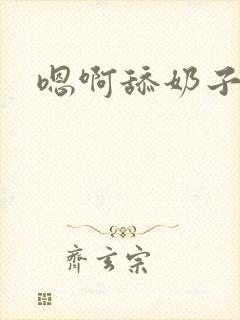 嗯啊舔奶子
齐玄宗